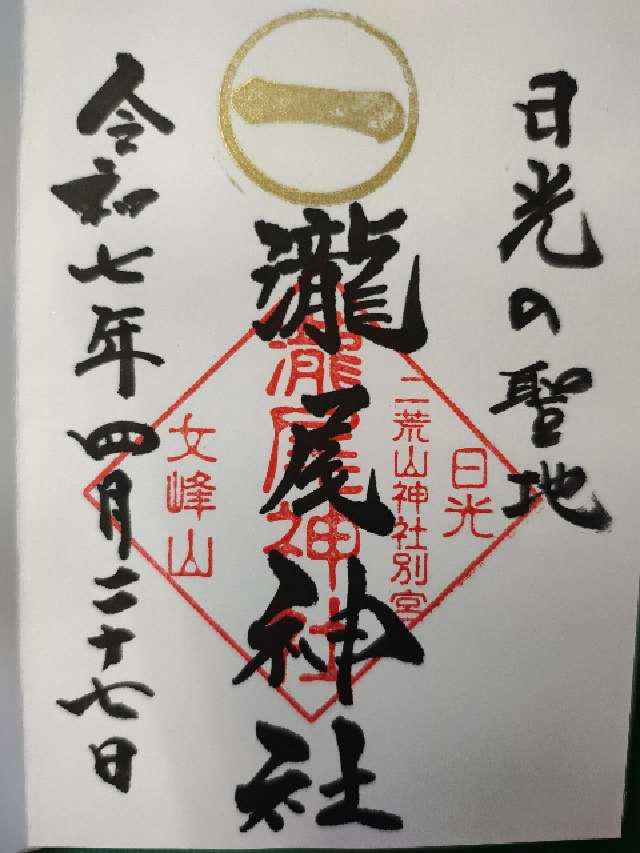 一
日光の聖地
瀧尾神社
令和七年四月二十七日
日光
二荒山神社別宮
瀧尾神社
女峰山